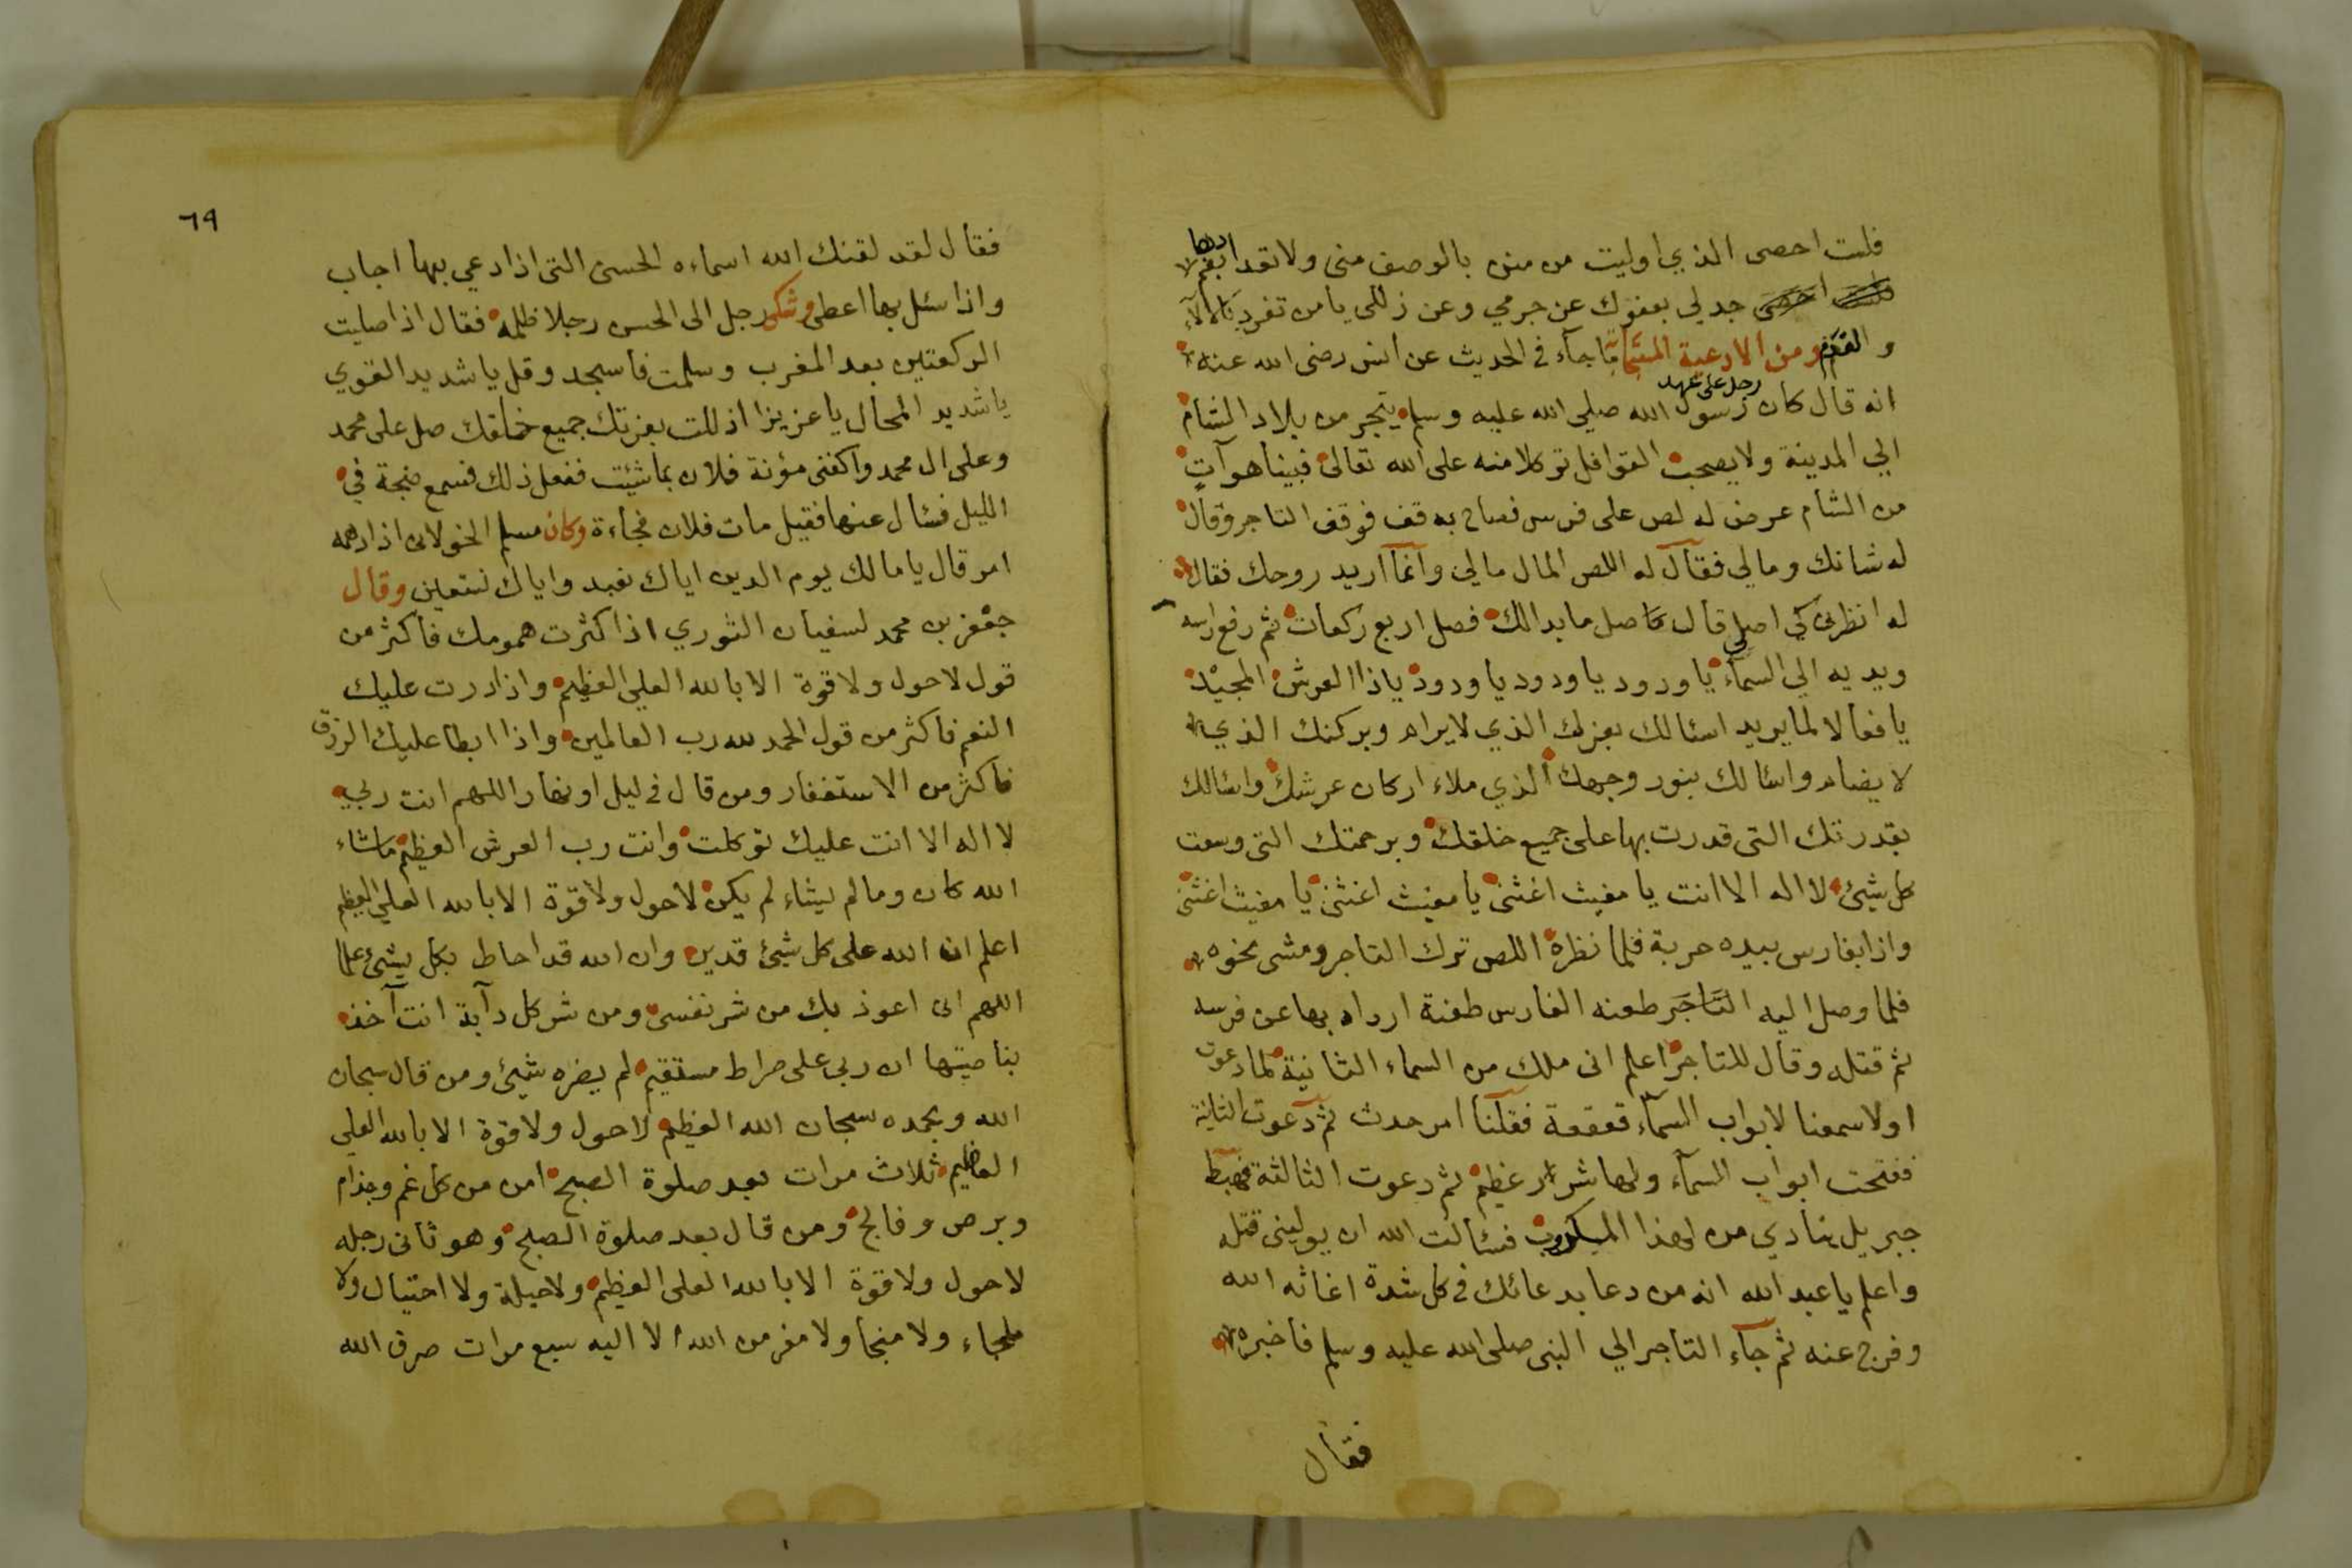 فلست احصى الذي اوليت من منن بالوصف منى ولا تقدادها
جد لي بعفوك عن جرمي وعن زللي يا من تفرد بالآلاء
والقدم ومن الادعية المستجابة ما جآء في الحديث عن انس رضى الله عنه
انه قال كان رجل على عهد رسول الله صلى الله عليه وسلم يتجر من بلاد الشام
الي المدينة ولا يصحب القوافل توكلا منه على الله تعالى فبينا هو آت
من الشام عرض له لص على فرس فصاح به قف فوقف التاجر وقال
له شانك ومالي فقال له اللص المال مالي وانما اريد روحك فقال
له انظرنى كي اصلي قال صل ما بدالك فصل اربع ركعات ثم رفع راسه
ويديه الي السمآء يا ودود يا ودود يا ودود يا ذا العرش المجيد
يا فعالا لما يريد اسئالك بعزك الذي لا يرام وبركنك الذي
لا يضام واسئالك بنور وجهك الذي ملاء اركان عرشك واسئالك
بقدرتك التى قدرت بها على جميع خلقك وبرحمتك التى وسعت
كل شيئ لا اله الا انت يا مغيث اغثنى يا مغيث اغثنى يا مغيث اغثنى
واذا بفارس بيده حربة فلما نظره اللص ترك التاجر ومشى نحوه
فلما وصل اليه التاجر طعنه الفارس طعنة ارداه بها عن فرسه
ثم قتله وقال للتاجر اعلم انى ملك من السماء الثانية لما دعوت
اولا سمعنا لابواب السمآء قعقعة فقلنا امر حدث ثم دعوت الثانية
ففتحت ابواب السمآء ولها شرار عظيم ثم دعوت الثالثة فهبط
جبريل ينادي من لهذا المكروب فسئالت الله ان يولينى قتله
واعلم يا عبد الله انه من دعا بدعائك فى كل شدة اغاثه الله
وفرج عنه ثم جآء التاجر الي النبى صلى الله عليه وسلم فاخبره
فقال
٦٩
فقال لقد لقنك الله اسماءه الحسنى التى اذا دعي بها اجاب
واذا سئل بها اعطى وشكى رجل الى الحسن رجلا ظلمه فقال اذا صليت
الركعتين بعد المغرب وسلمت فاسجد وقل يا شديد القوي
يا شديد المحال يا عزيزا اذللت بعزتك جميع خلقك صل على محمد
وعلى ال محمد واكفنى مؤنة فلان بما شئت ففعل ذلك فسمع ضجة في
الليل فسئال عنها فقيل مات فلان فجاءة وكان مسلم الخولانى اذا دهمه
امر قال يا مالك يوم الدين اياك نعبد واياك نستعين وقال
جعفر بن محمد لسفيان الثوري اذا كثرت همومك فاكثر من
قول لا حول ولا قوة الا بالله العلى العظيم واذا درت عليك
النعم فاكثر من قول الحمد لله رب العالمين واذا ابطا عليك الرزق
فاكثر من الاستغفار ومن قال فى ليل او نهار اللهم انت ربي
لا اله الا انت عليك توكلت وانت رب العرش العظيم ما شاء
الله كان وما لم يشاء لم يكن لا حول ولا قوة الا بالله العلي العظيم
اعلم ان الله على كل شيئ قدير وان الله قد احاط بكل شيئ علما
اللهم انى اعوذ بك من شر نفسى ومن شر كل دآبة انت آخذ
بناصيتها ان ربى على صراط مستقيم لم يضره شيئ ومن قال سبحان
الله وبحمده سبحان الله العظيم لا حول ولا قوة الا بالله العلي
العظيم ثلاث مرات بعد صلوة الصبح امن من كل غم وجذام
وبرص وفالج ومن قال بعد صلوة الصبح وهو ثانى رجله
لا حول ولا قوة الا بالله العلى العظيم ولا حيلة ولا احتيال ولا
ملجاء ولا منجا ولا مفر من الله الا اليه سبع مرات صرف الله